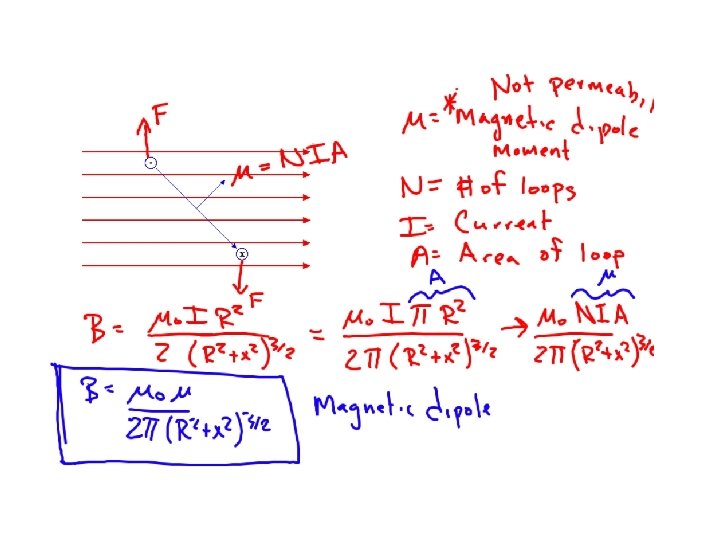 Not permeab
μ = * Magnetic dipole
moment
F
μ = NIA
N = # of loops
I = Current
A = Area of loop
x
F
A
μ
B = μ₀ I R² / 2 (R²+x²)^3/2 = μ₀ I π R² / 2π (R²+x²)^3/2 → μ₀ NIA / 2π (R²+x²)^3/2
B = μ₀ μ / 2π (R²+x²)^3/2
Magnetic dipole